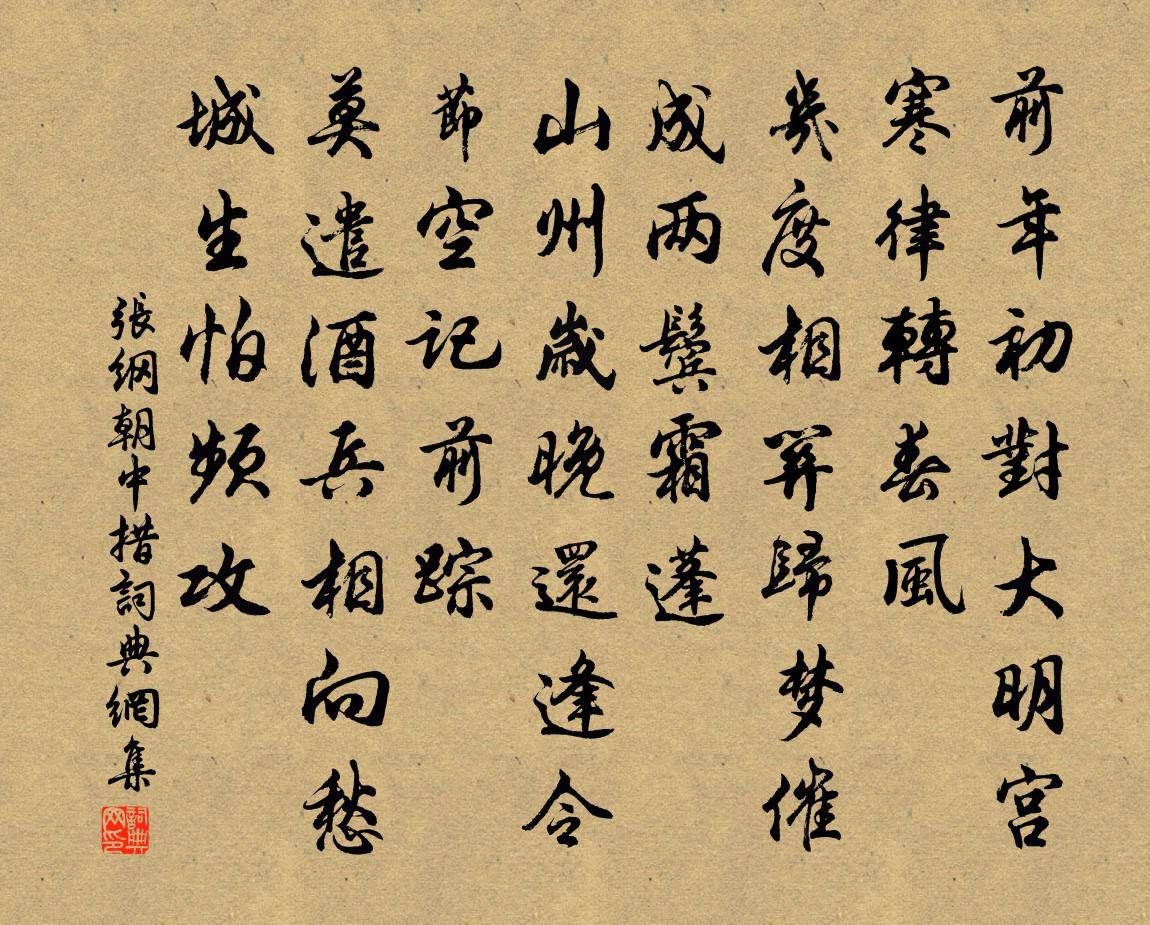 前年初對大明宫
寒律轉春風
幾度相関歸梦催
成两鬢霜蓬
山州歲晚還逢令
節空记前踪
莫遣酒兵相向愁
城生怕频攻
張綱朝中措詞典網集
詞典网印